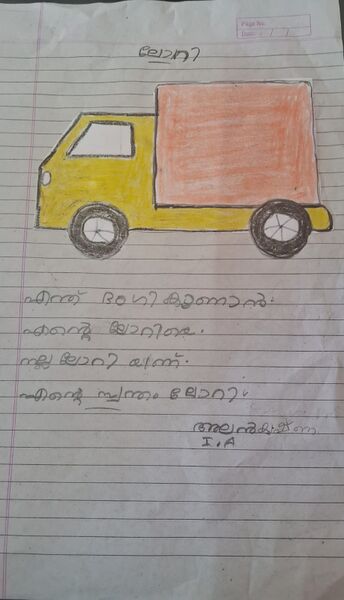 Page No.
Date: / /
ലോറി
എന്ത് ഭംഗി കാണാൻ.
എന്റെ ലോറിയെ.
നല്ല ലോറി യാണ്.
എന്റെ സ്വന്തം ലോറി.
അലൻകൃഷ്ണ
I.A